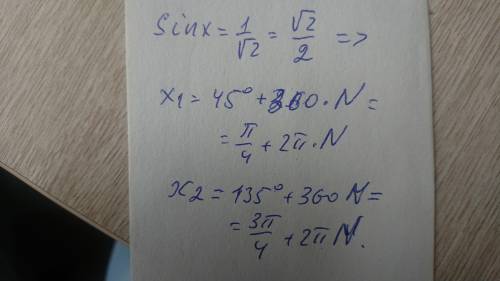 Sinx = 1/√2 = √2/2 =>
x1 = 45° + 360 · N =
= π/4 + 2π · N
x2 = 135° + 360 N =
= 3π/4 + 2π N.